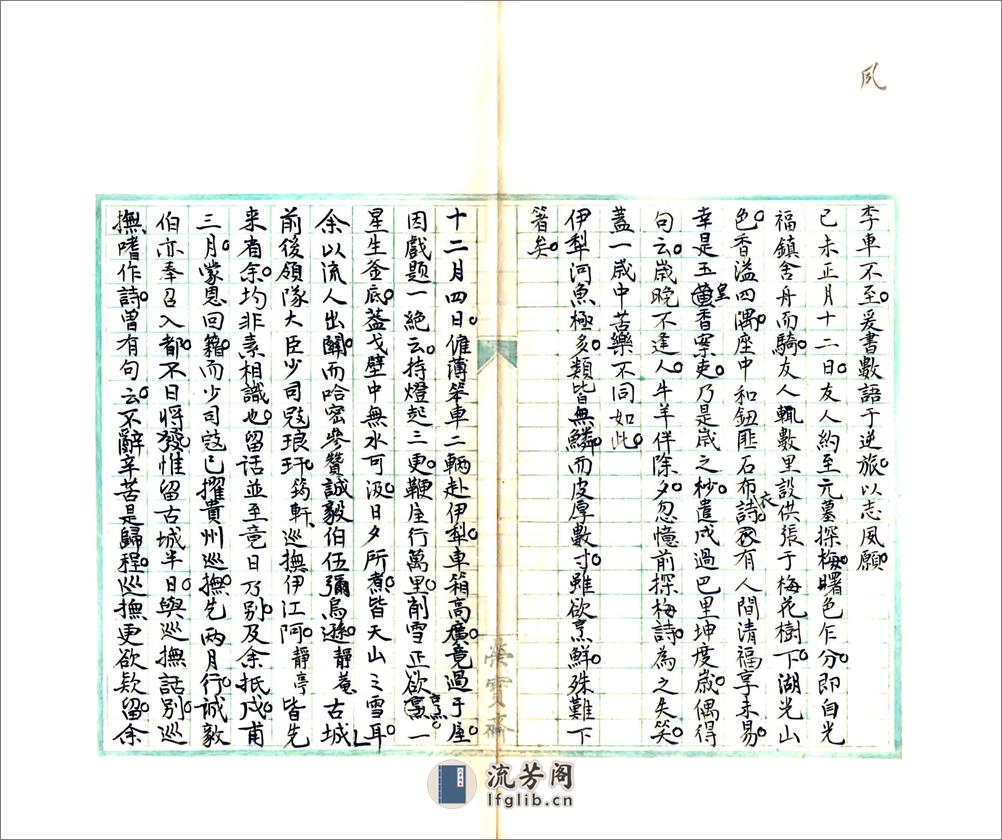 夙
李車不至爰書數語于逆旅以志夙願
己未正月十二日友人約至元墓探梅曙色乍分即自光
福鎮舍舟而騎友人輒數里設供張于梅花樹下湖光山
色香溢四隅座中和鈕匪石布衣詩有人間清福享未易
幸是玉皇香案吏乃是歲之杪遣戍過巴里坤度歲偶得
句云歲晚不逢人牛羊伴除夕忽憶前探梅詩為之失笑
蓋一歲中苦樂不同如此
伊犁河魚極多類皆無鱗而皮厚數寸雖欲烹鮮殊難下
箸矣
十二月四日僱薄笨車二輛赴伊犁車箱高廣竟過于屋
因戲題一絕云持燈起三更鞭屋行萬里削雪正欲烹一
星生釜底蓋戈壁中無水可汲日夕所煮皆天山之雪耳
余以流人出關而哈密參贊誠毅伯伍彌烏遜靜菴古城
前後領隊大臣少司寇琅玕筠軒巡撫伊江阿靜亭皆先
來者余均非素相識也留話並至竟日乃別及余抵戍甫
三月蒙恩回籍而少司寇已擢貴州巡撫先兩月行誠毅
伯亦奉召入都不日將發惟留古城半日與巡撫話別巡
撫嗜作詩曾有句云不辭辛苦是歸程巡撫更欲款留余
榮寶齋
流芳阁
lfglib.cn